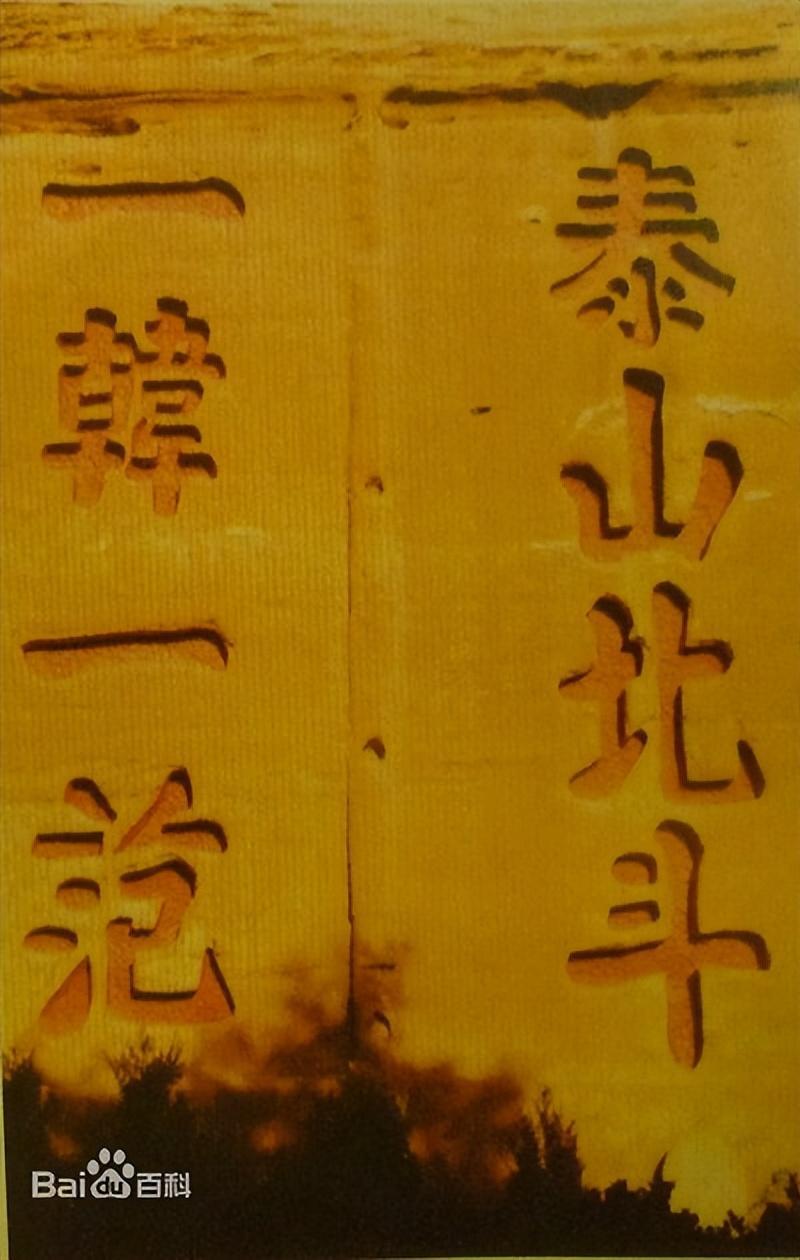 泰山北斗
一韓一范
Baidu百科